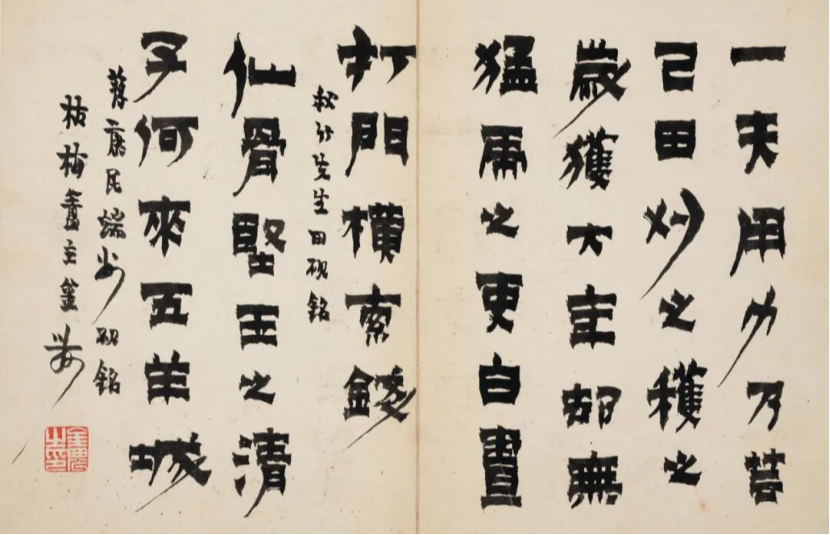 一夫用力乃菑
己田耖之穫之
歲獲大年却無
猛虎之吏白晝
打門橫索錢
秋竹先生田硯銘
仙骨堅玉之清
子何來五羊城
康民端州硯銘
枯梅盦主金農
金農之印